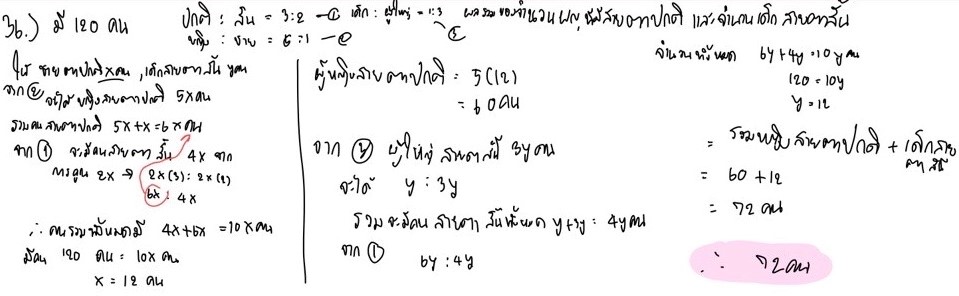 36.) มี 120 คน
ปกติ : สั้น = 3:2 — ① เด็ก : ผู้ใหญ่ = 1:3 ผลรวมของจำนวนผญ.ที่มีสายตาปกติ และจำนวนเด็กสายตาสั้น
หญิง : ชาย = 5:1 — ②
③
ให้ ชายตาปกติ x คน , เด็กสายตาสั้น y คน
จาก ② จะได้ หญิงสายตาปกติ 5x คน
รวมคนสายตาปกติ 5x+x = 6x คน
จาก ① จะมีคนสายตาสั้น 4x จาก
การคูณ 2x → 2x(3) : 2x(2)
6x : 4x
∴ คนรวมทั้งหมดมี 4x+6x = 10x คน
มีคน 120 คน = 10x คน
x = 12 คน
ผู้หญิงสายตาปกติ = 5(12)
= 60 คน
จาก ③ ผู้ใหญ่ สายตาสั้น 3y คน
จะได้ y : 3y
รวมจะมีคน สายตาสั้นทั้งหมด y+3y = 4y คน
จาก ① 6y : 4y
จำนวนทั้งหมด 6y+4y = 10y คน
120 = 10y
y = 12
= รวมหญิงสายตาปกติ + เด็กสาย
ตาสั้น
= 60 + 12
= 72 คน
∴ 72 คน